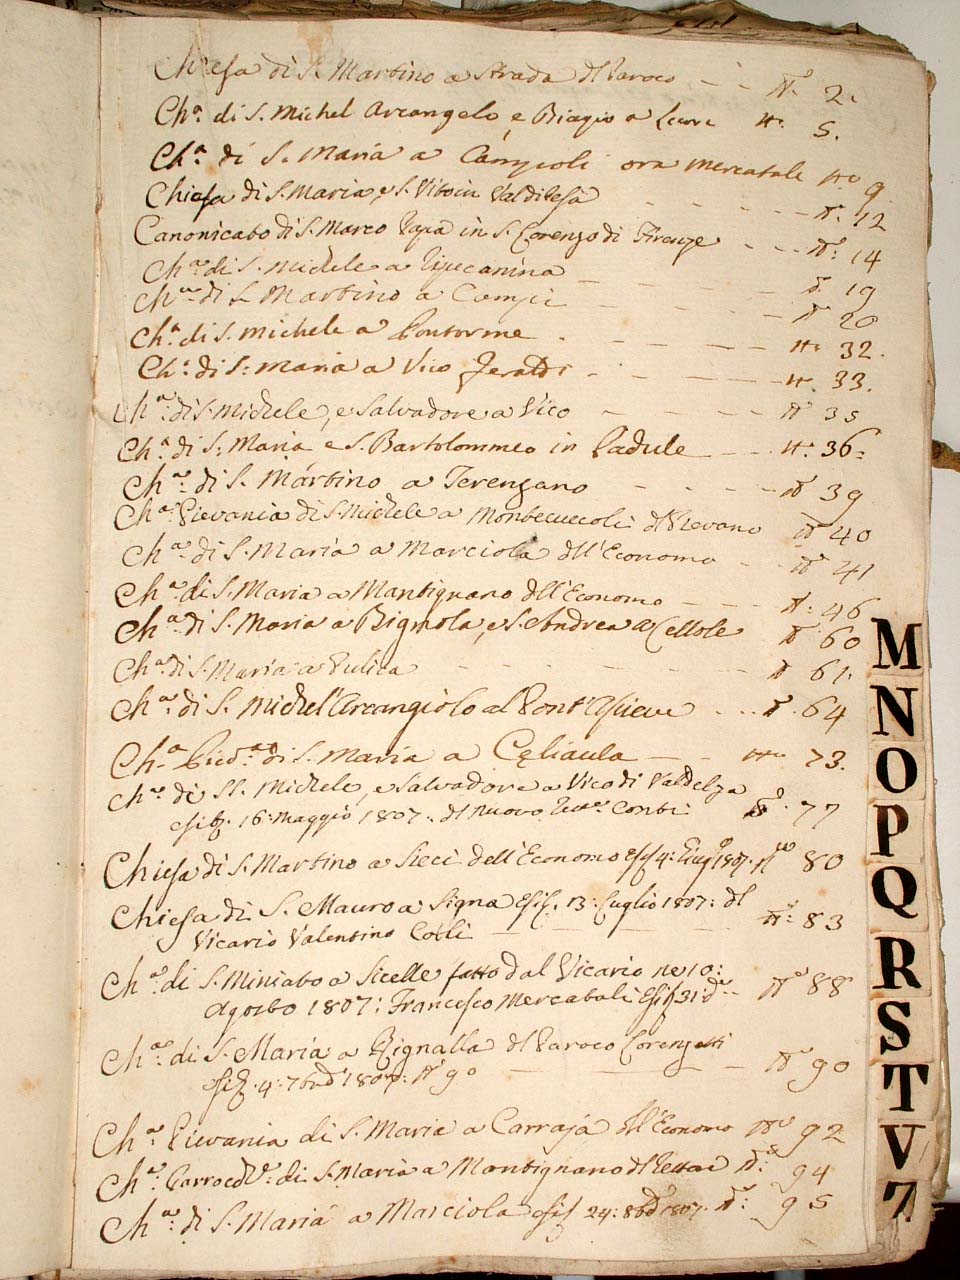 Chiesa di S. Martino a Strada dl Paroco N.° 2.
Ch.ª di S. Michel Arcangelo, e Biagio a N. 5.
Ch.ª di S. Maria a Campioli ora Mercatale N.° 9
Chiesa di S. Maria, e S. Vito in Valdipesa N. 12
Canonicato di S. Marco Papa in S. Lorenzo di Firenze N.° 14
Ch.ª di S. Michele a N. 19
Ch.ª di S. Martino a Campi N. 20
Ch.ª di S. Michele a Pontorme N. 32.
Ch.ª di S. Maria a Vico N. 33.
Ch.ª di S. Michele, e Salvadore a Vico N. 35
Ch.ª di S. Maria e S. Bartolommeo in Padule N. 36.
Ch.ª di S. Martino a Terenzano N. 39
Ch.ª Pievania di S. Michele a Montecuccoli dl Pievano N. 40
Ch.ª di S. Maria a Marciola dll'Economo N. 41
Ch.ª di S. Maria a Mantignano dll'Economo N. 46
Ch.ª di S. Maria a Bignola, e S. Andrea a Cellole N. 60
Ch.ª di S. Maria a Pulica N. 61.
Ch.ª di S. Michel'Arcangiolo al Pont'Asieve N. 64
Ch.ª di S. Maria a Celiaula N.° 73.
Ch.ª di SS. Michele, e Salvadore a Vico di Valdelza
16. Maggio 1807. dl Nuovo Conti N.° 77
Chiesa di S. Martino a Sieci dell'Economo esis. 4. Giug.° 1807. N.° 80
Chiesa di S. Mauro a Signa Esis. 13. Luglio 1807. dl
Vicario Valentino N.° 83
Ch.ª di S. Miniato a Sicelle fatto dal Vicario ne 10:
Agosto 1807. Francesco Mercatali Esis 31 d.° N.° 88
Ch.ª di S. Maria a Rignalla dl Paroco Lorenzetti
esis. 4. 7bre 1807. N.° 90 N.° 90
Ch.ª Pievania di S. Maria a Carraja dll'Economo N.° 92
Ch.ª di S. Maria a Mantignano dl N.° 94
Ch.ª di S. Maria a Marciola esis 24. 8bre 1807. N.° 95
M
N
O
P
Q
R
S
T
V
Z